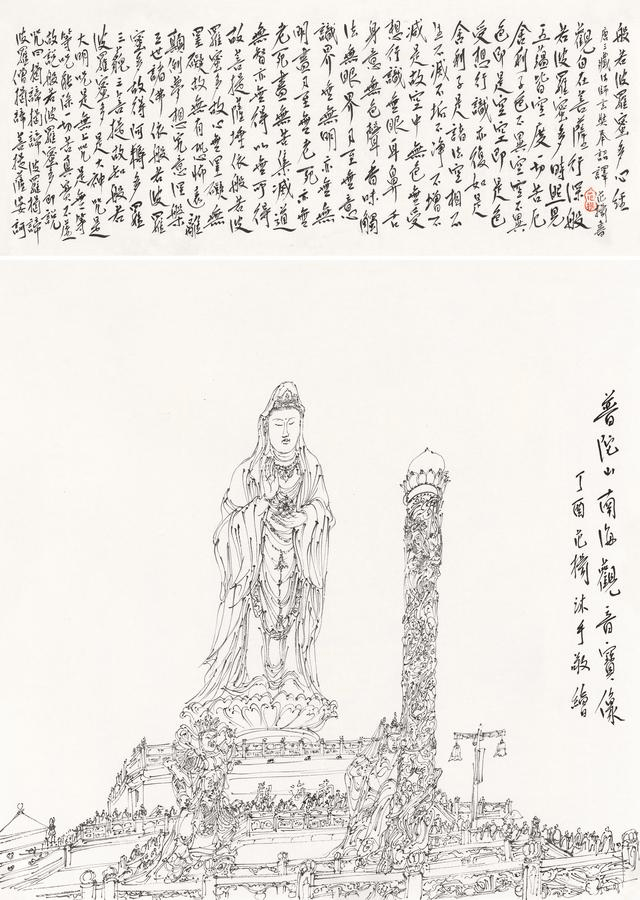 般若波羅蜜多心經
唐三藏法師玄奘奉詔譯 范揚書
觀自在菩薩行深般
若波羅蜜多時照見
五蘊皆空度一切苦厄
舍利子色不異空空不異
色即是空空即是色
受想行識亦復如是
舍利子是諸法空相不
生不滅不垢不淨不增不
減是故空中無色無受
想行識無眼耳鼻舌
身意無色聲香味觸
法無眼界乃至無意
識界無無明亦無無
明盡乃至無老死亦無
老死盡無苦集滅道
無智亦無得以無所得
故菩提薩埵依般若波
羅蜜多故心無罣礙無
罣礙故無有恐怖遠離
顛倒夢想究竟涅槃
三世諸佛依般若波羅
蜜多故得阿耨多羅
三藐三菩提故知般若
波羅蜜多是大神咒是
大明咒是無上咒是無等
等咒能除一切苦真實不虛
故說般若波羅蜜多咒即說
咒曰揭諦揭諦波羅揭諦
波羅僧揭諦菩提薩婆訶
普陀山南海觀音寶像
丁酉范揚沐手敬繪